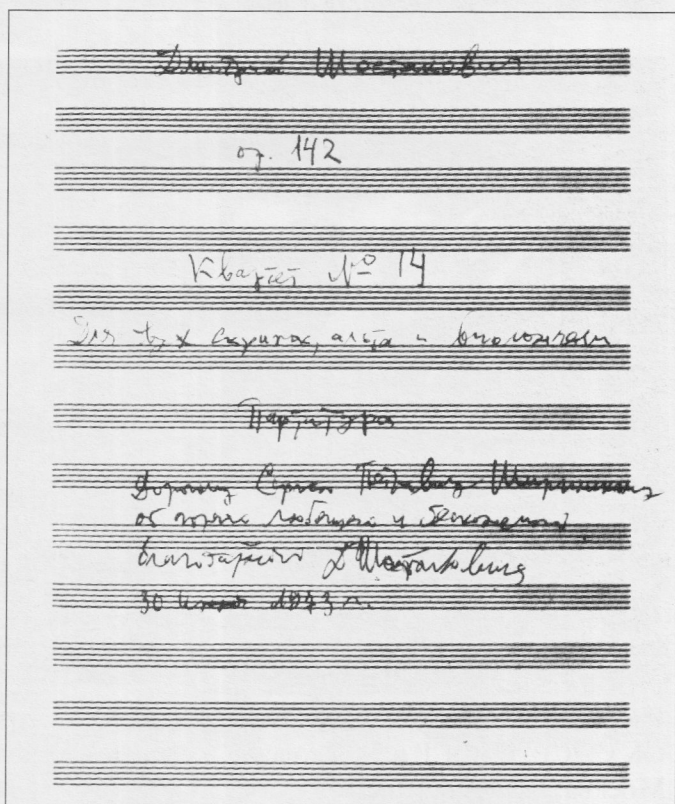 Дмитрий Шостакович
ор. 142
Квартет № 14
Для двух скрипок, альта и виолончели
Партитура
Дорогому Сергею Петровичу Ширинскому
от горячо любящего и бесконечно
благодарного Д Шостаковича
30 1973 г.